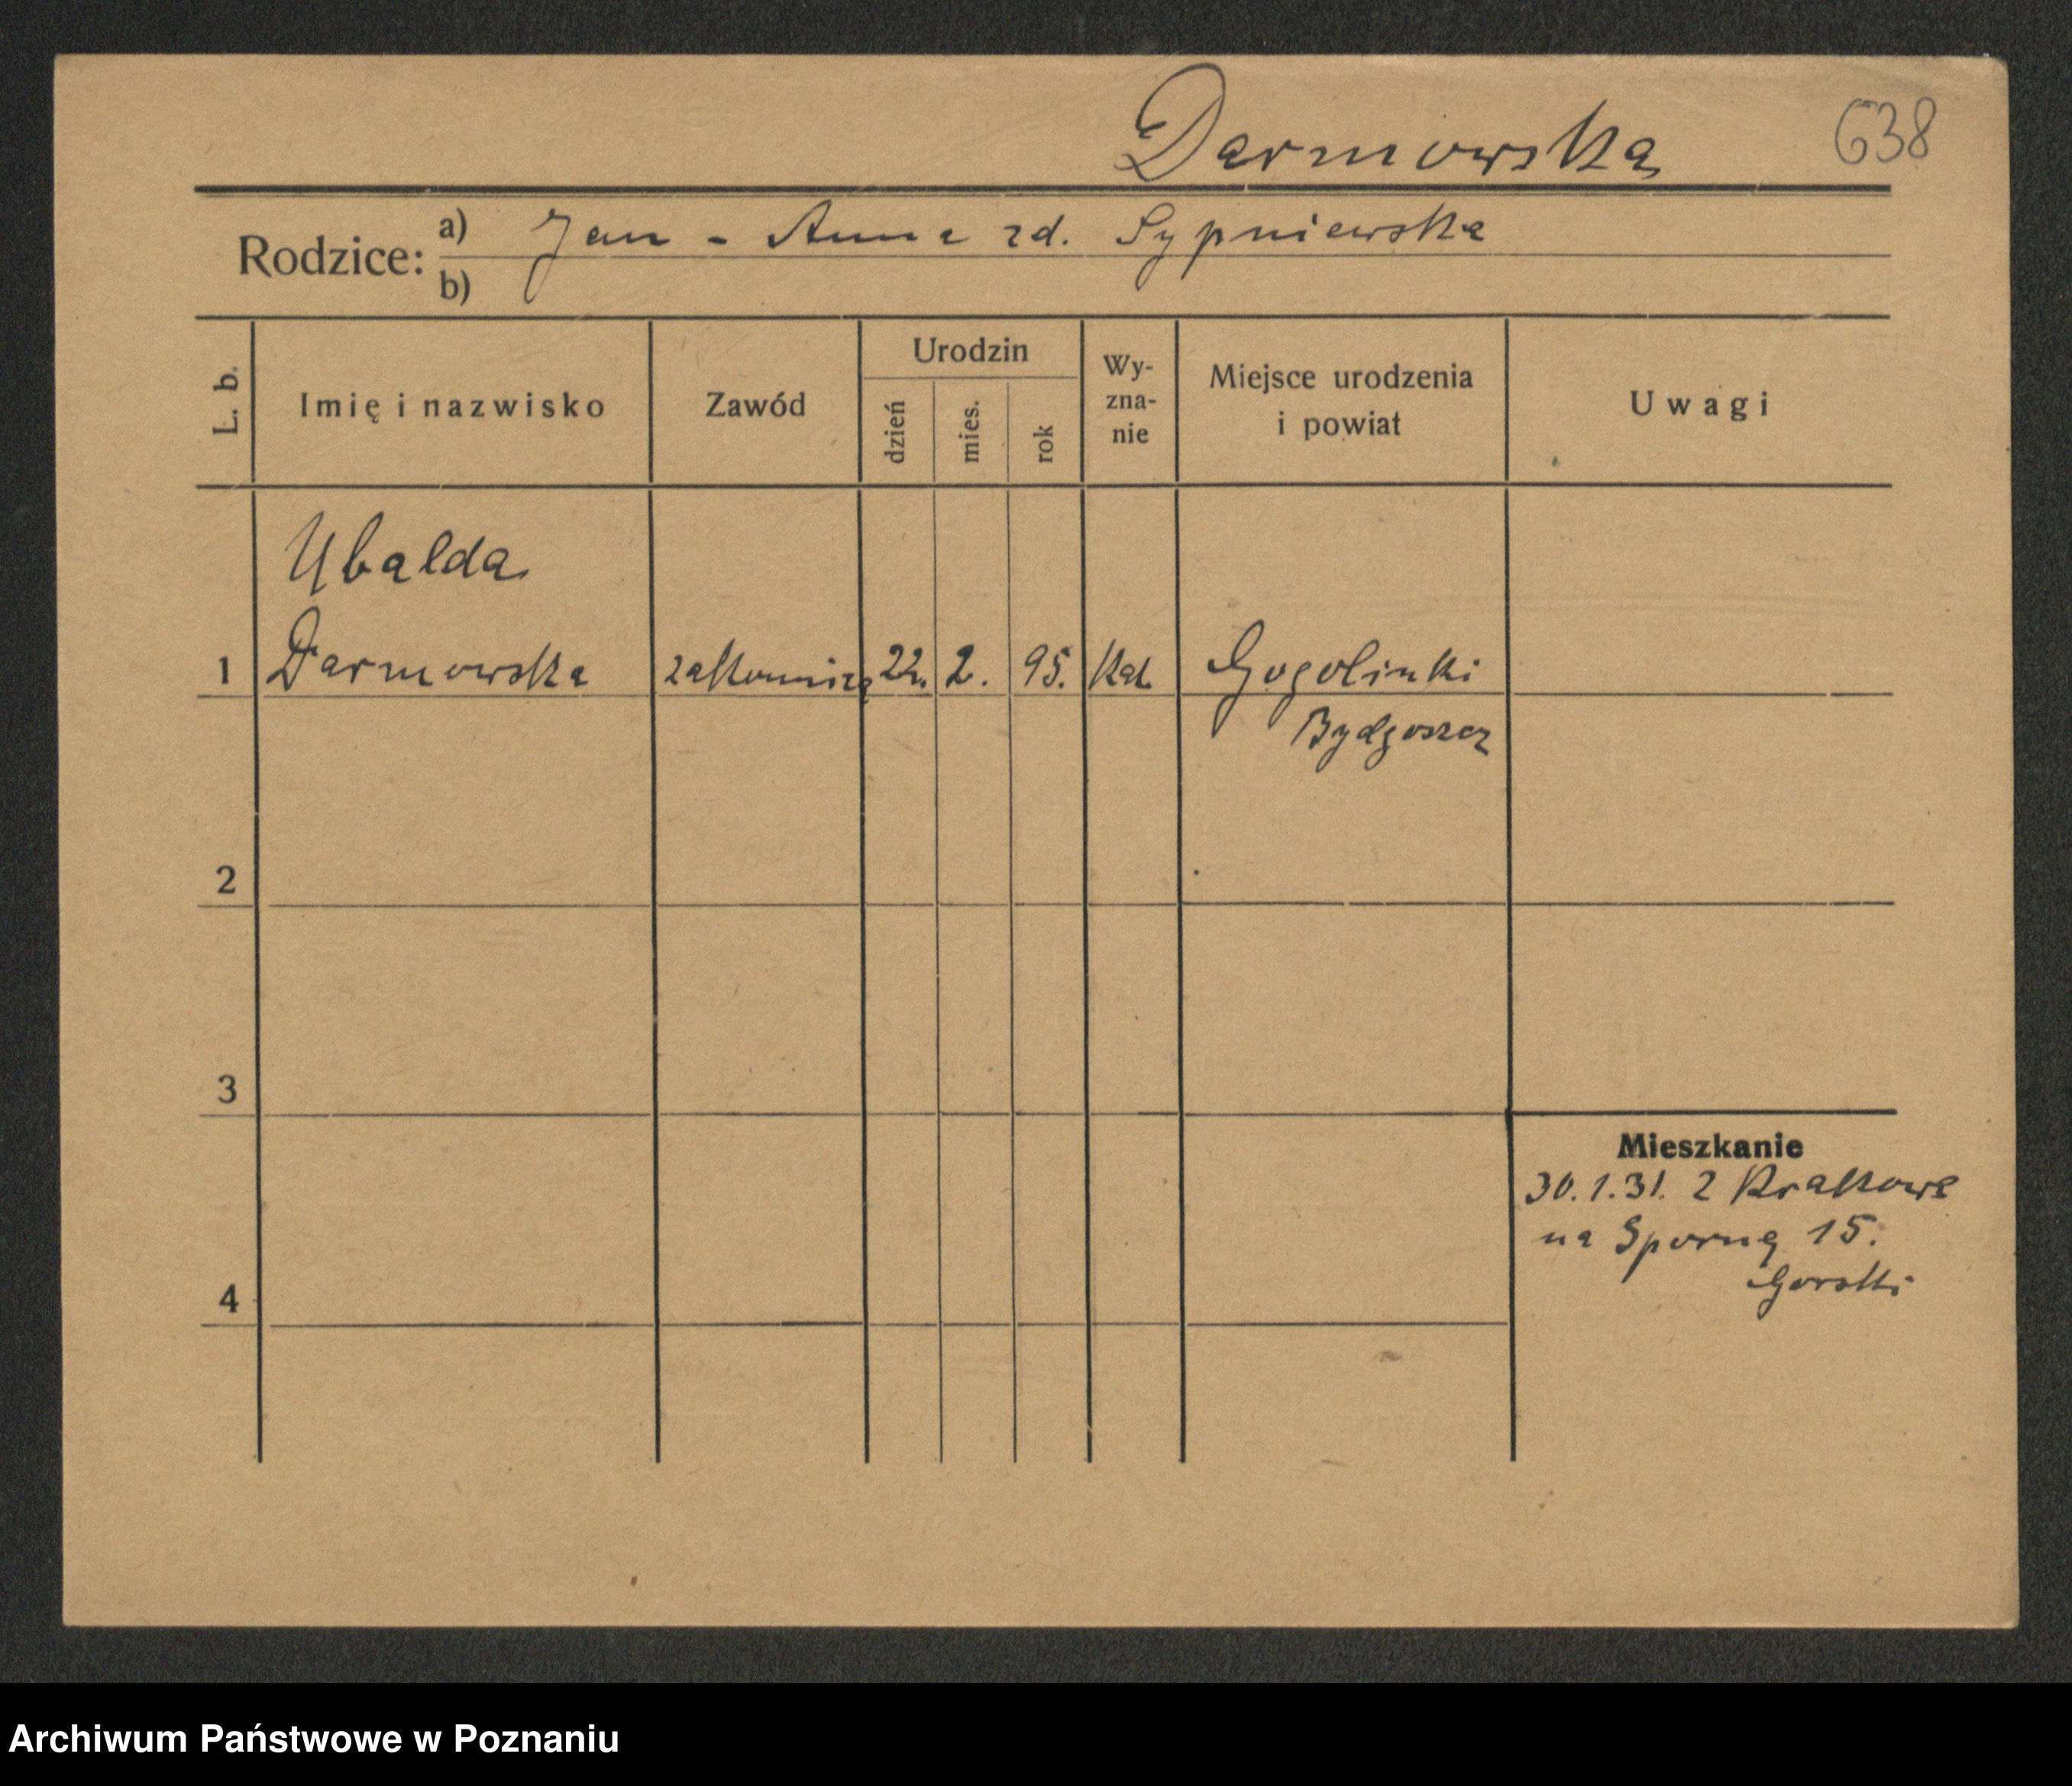 Darmowska 638
Rodzice: a) Jan - Anna zd. Sypniewska
b)
L. b. Imię i nazwisko Zawód Urodzin dzień mies. rok Wy-zna-nie Miejsce urodzenia i powiat Uwagi
Ubalda
1 Darmowska zakonnica 22. 2. 95. Kat. Gogolinki
Bydgoszcz
2
3
Mieszkanie
30.1.31. z Krakowa
na Sporną 15.
Gorski
4
Archiwum Państwowe w Poznaniu